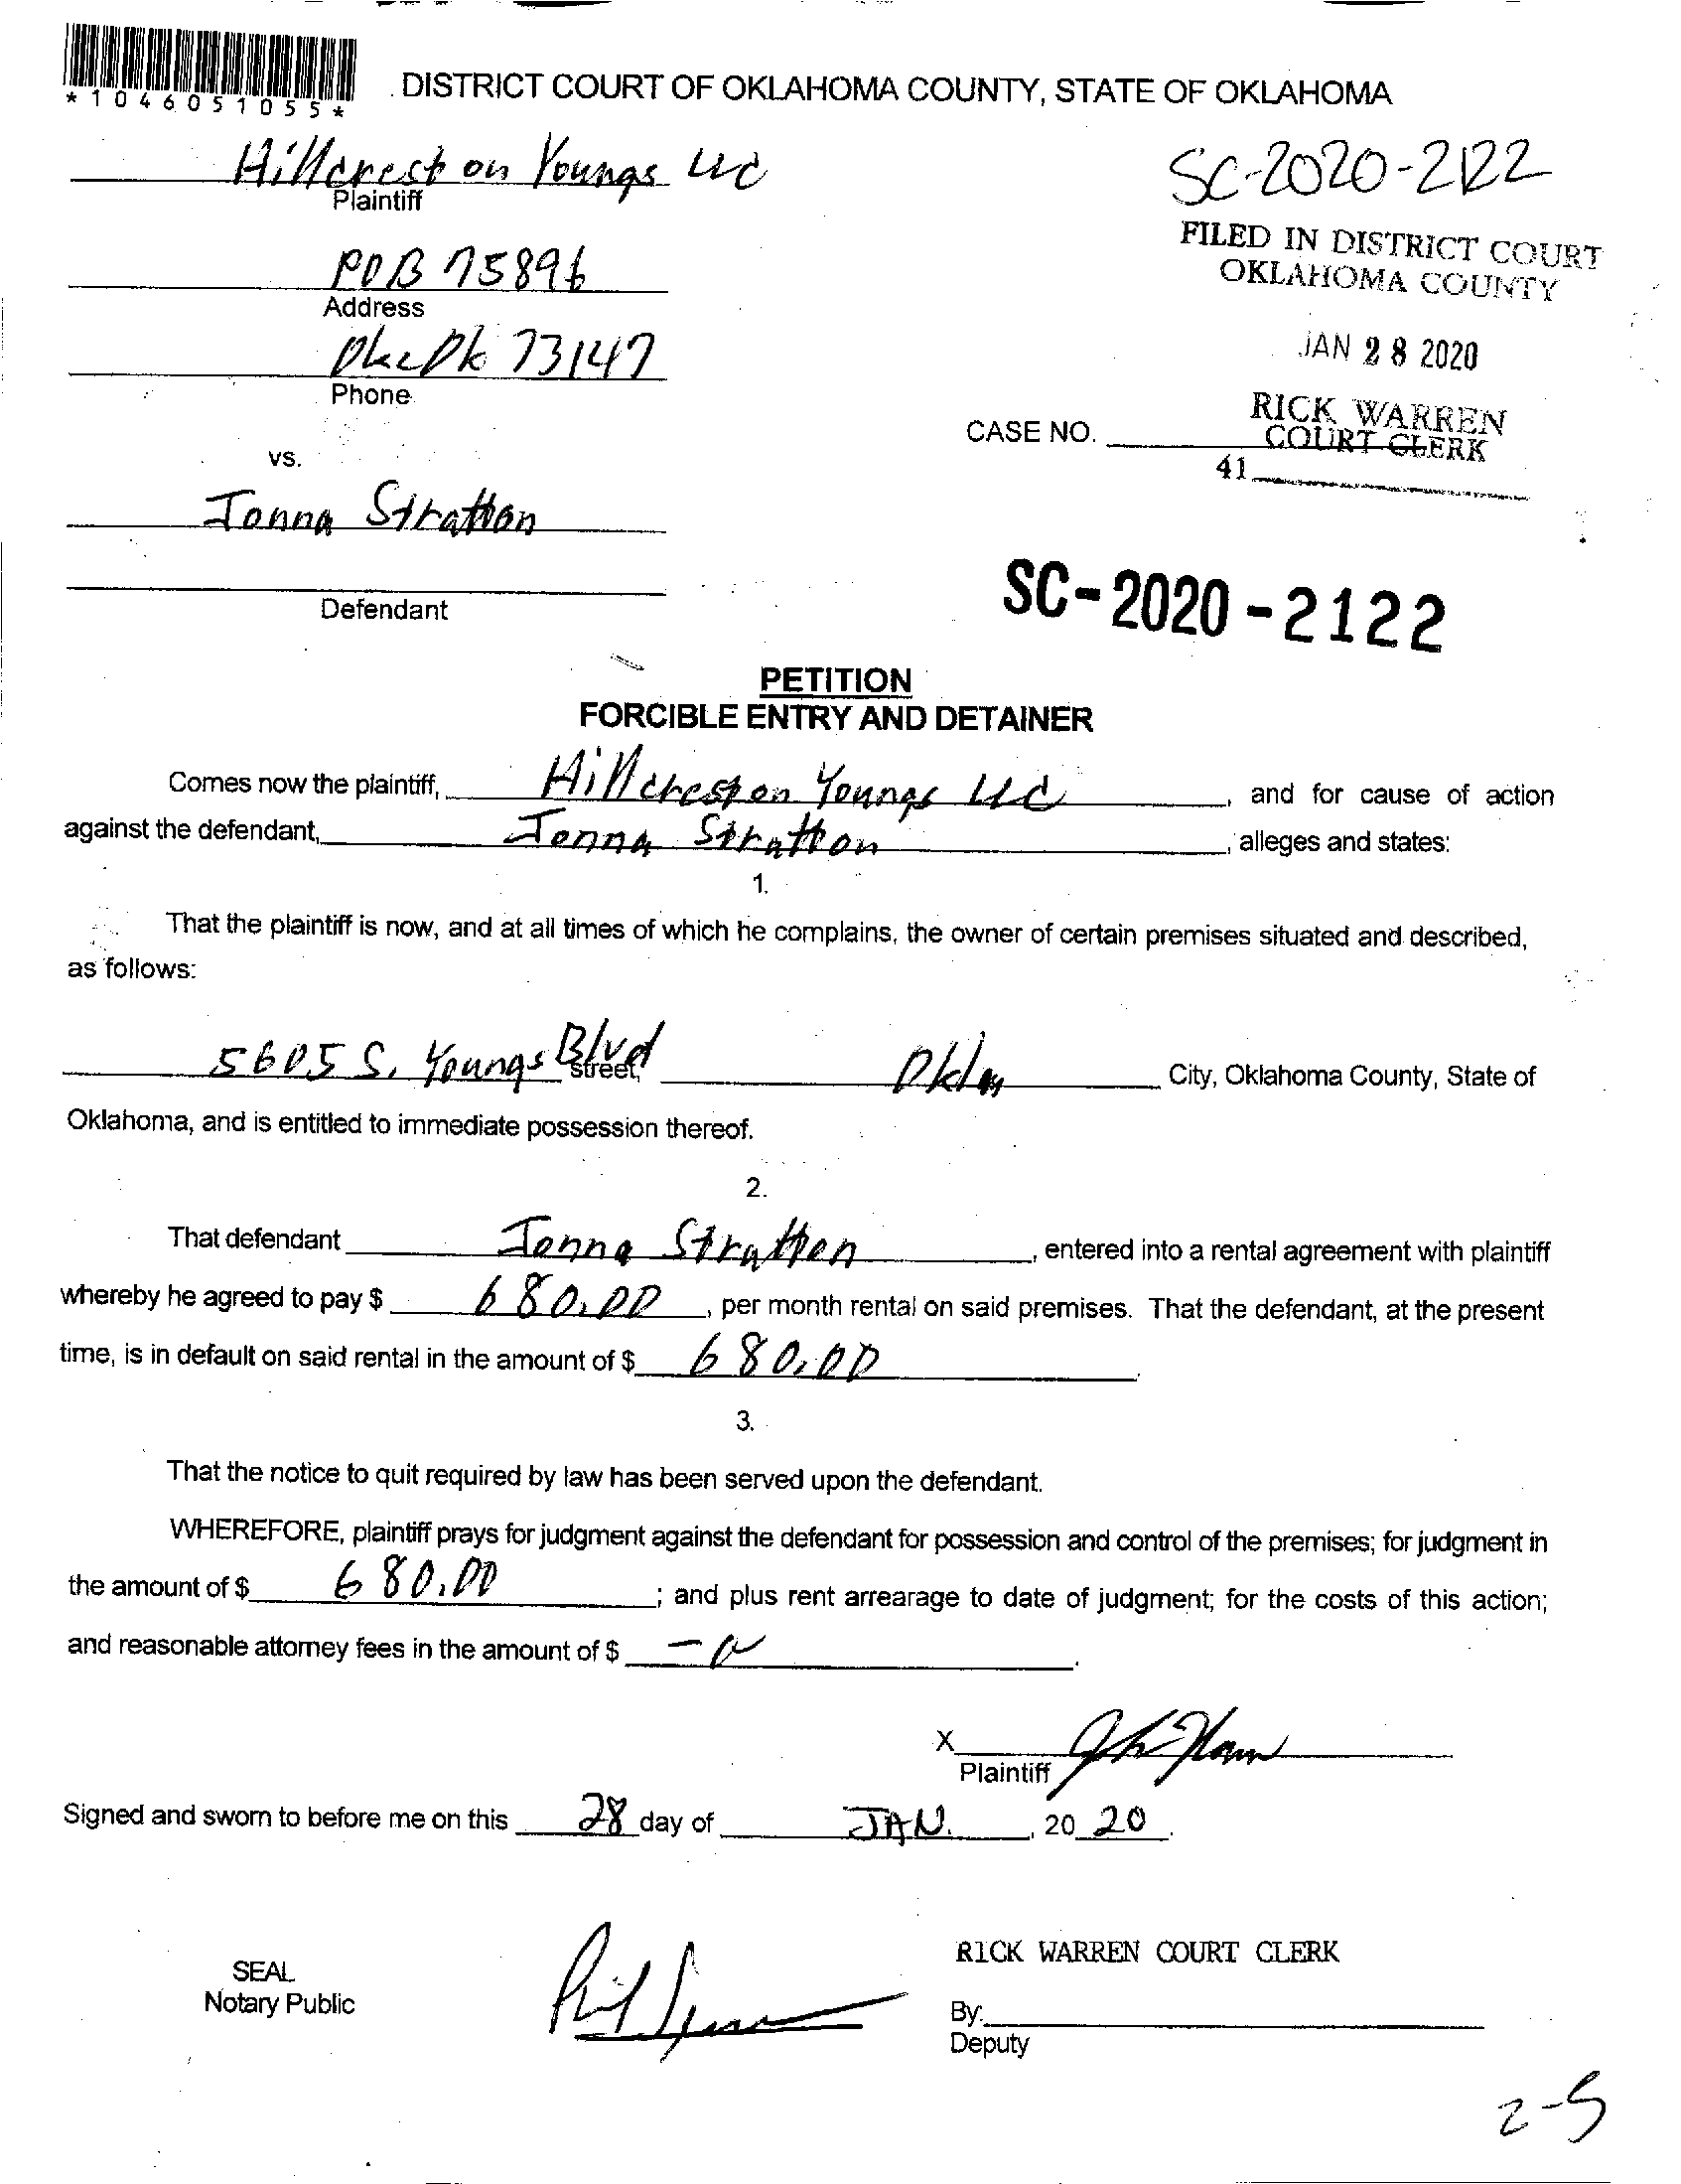 *1046051055*
DISTRICT COURT OF OKLAHOMA COUNTY, STATE OF OKLAHOMA
Hillcrest on Youngs LLC
Plaintiff
SC-2020-2122
FILED IN DISTRICT COURT
OKLAHOMA COUNTY
POB 75896
Address
JAN 28 2020
Okc Ok 73147
Phone
RICK WARREN
COURT CLERK
CASE NO.
41
vs.
Jonna Stratton
Defendant
SC-2020-2122
PETITION
FORCIBLE ENTRY AND DETAINER
Comes now the plaintiff, Hillcrest on Youngs LLC, and for cause of action
against the defendant, Jonna Stratton, alleges and states:
1.
That the plaintiff is now, and at all times of which he complains, the owner of certain premises situated and described,
as follows:
5605 S. Youngs Blvd street, Okla City, Oklahoma County, State of
Oklahoma, and is entitled to immediate possession thereof.
2.
That defendant Jonna Stratton, entered into a rental agreement with plaintiff
whereby he agreed to pay $ 680.00, per month rental on said premises. That the defendant, at the present
time, is in default on said rental in the amount of $ 680.00
3.
That the notice to quit required by law has been served upon the defendant.
WHEREFORE, plaintiff prays for judgment against the defendant for possession and control of the premises; for judgment in
the amount of $ 680.00; and plus rent arrearage to date of judgment; for the costs of this action;
and reasonable attorney fees in the amount of $
X
Plaintiff
Signed and sworn to before me on this 28 day of JAN., 20 20.
RICK WARREN COURT CLERK
SEAL
Notary Public
By:
Deputy
2-5